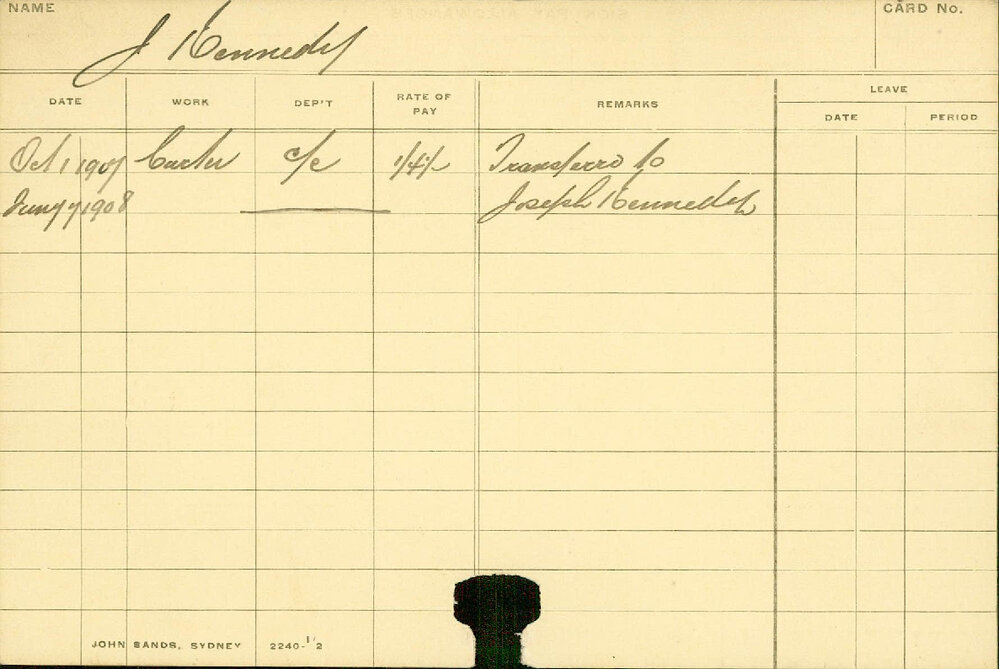 NAME J Kennedy CARD No.
DATE WORK DEP'T RATE OF PAY REMARKS LEAVE
DATE PERIOD
Oct 1 1907 Carter c/c Transferrd to
7 1908 Joseph Kennedy
JOHN SANDS, SYDNEY 2240-1/2